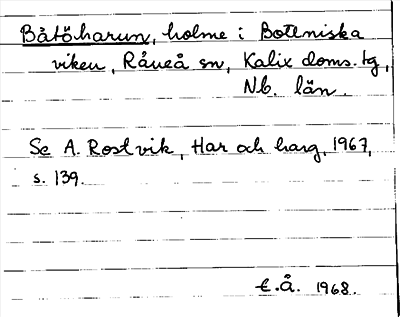 Båtöharun, holme i Bottniska
viken, Råneå sn, Kalix doms. tg,
Nb. län.
Se A. Rostvik, Har och harg, 1967,
s. 139.
E.Å. 1968.